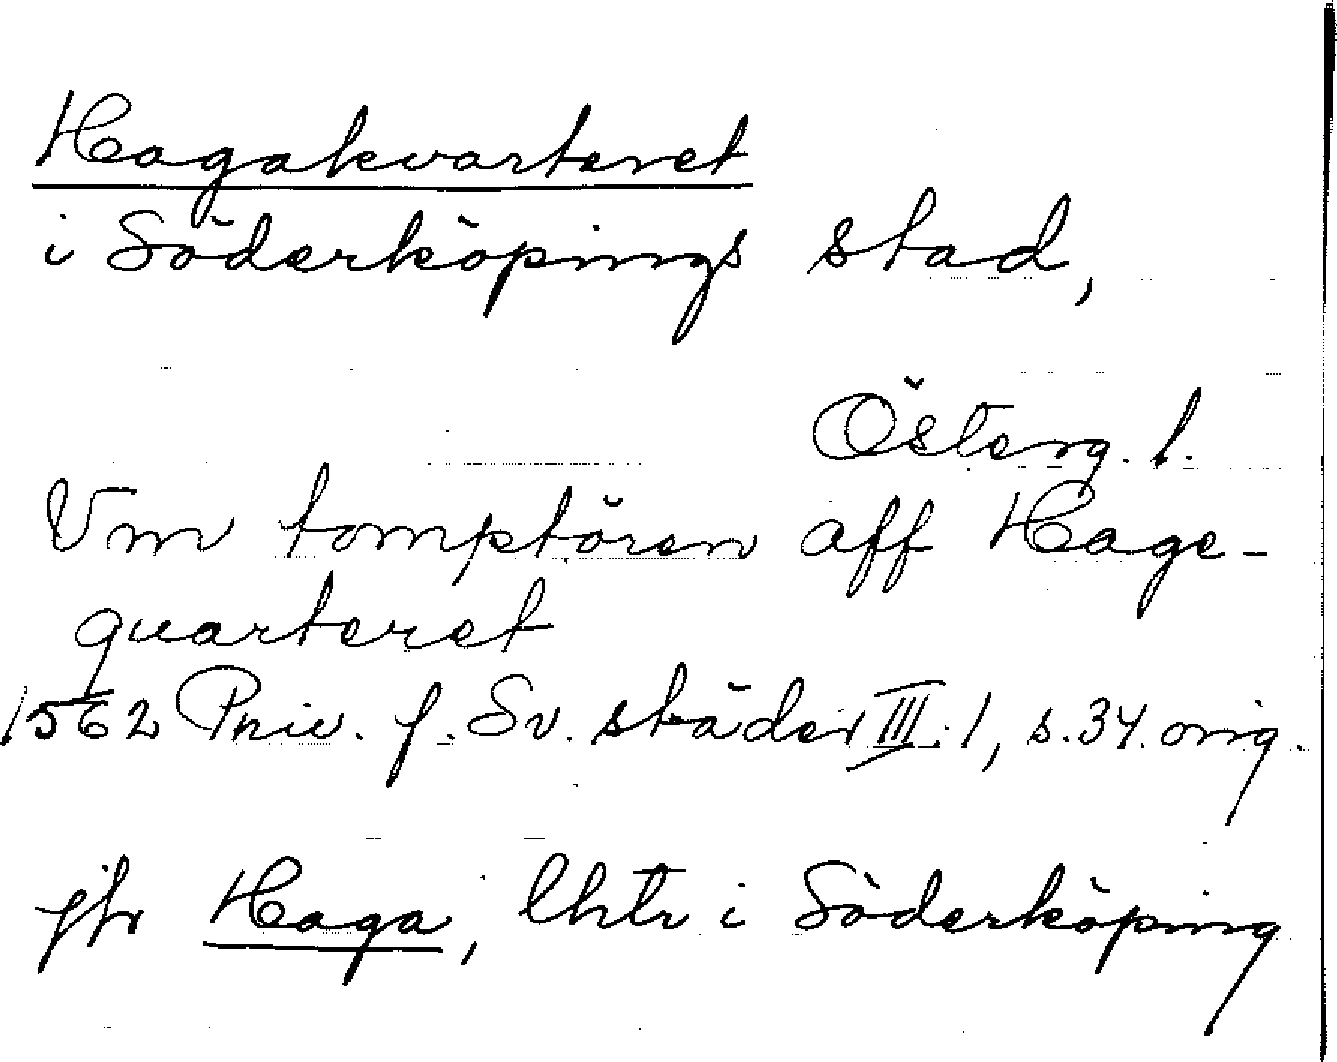 Hagakvarteret
i Söderköpings stad,
Österg. l.
Vm tomptören aff Hage-
quarteret
1562 Priv. f. Sv. städer III:1, s. 34. orig.
jfr Haga, lhtr i Söderköping